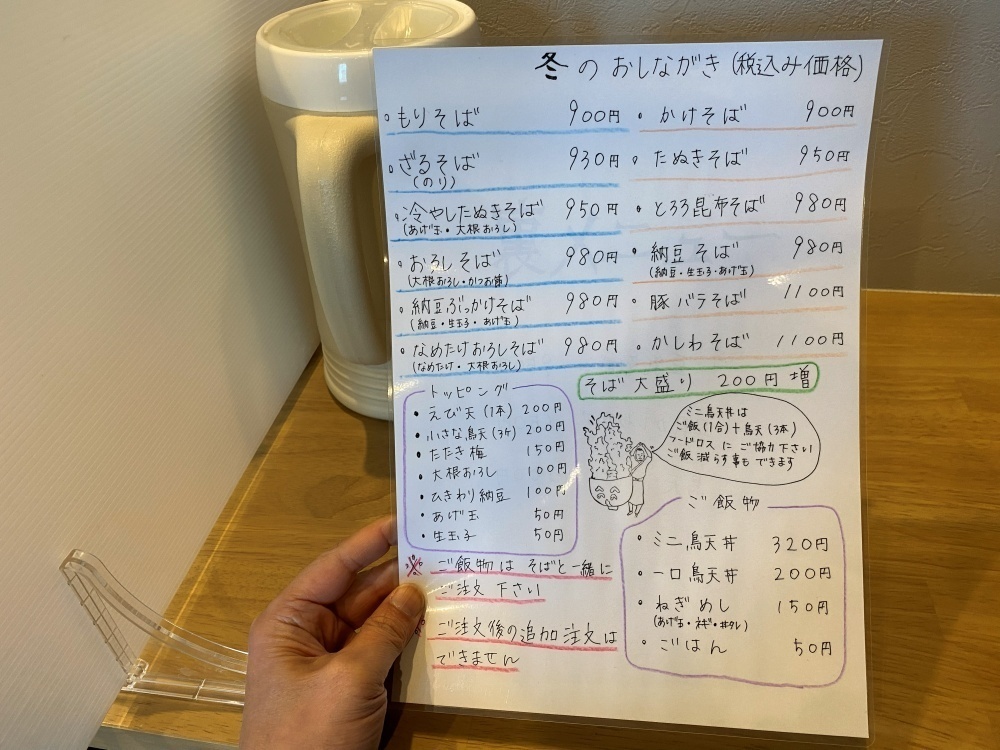 冬のおしながき(税込み価格)
。もりそば 900円
。ざるそば 930円
(のり)
。冷やしたぬきそば 950円
(あげ玉・大根おろし)
。おろしそば 980円
(大根おろし・かつお節)
。納豆ぶっかけそば 980円
(納豆・生玉子・あげ玉)
。なめたけおろしそば 980円
(なめたけ・大根おろし)
・かけそば 900円
・たぬきそば 950円
・とろろ昆布そば 980円
・納豆そば 980円
(納豆・生玉子・あげ玉)
・豚バラそば 1100円
・かしわそば 1100円
そば大盛り 200円増
トッピング
・えび天(1本) 200円
・小さな鳥天(3ケ) 200円
・たたき梅 150円
・大根おろし 100円
・ひきわり納豆 100円
・あげ玉 50円
・生玉子 50円
ミニ鳥天丼は
ご飯(1合)+鳥天(3本)
フードロスにご協力下さい
ご飯減らす事もできます
ご飯物
・ミニ鳥天丼 320円
・一口鳥天丼 200円
・ねぎめし 150円
(あげ玉・ネギ・丼タレ)
・ごはん 50円
※ご飯物はそばと一緒に
ご注文下さい
ご注文後の追加注文は
できません